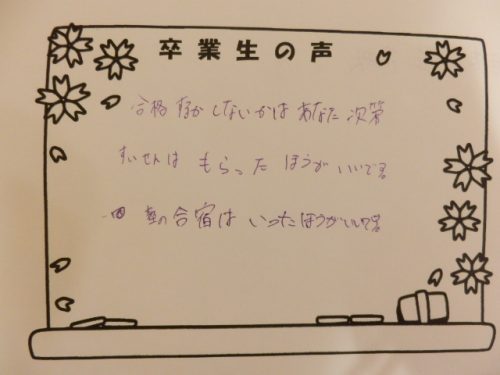 卒業生の声
合格するかしないかはあなた次第
すいせんは もらった ほうが いいです
の合宿は いったほうがいいです